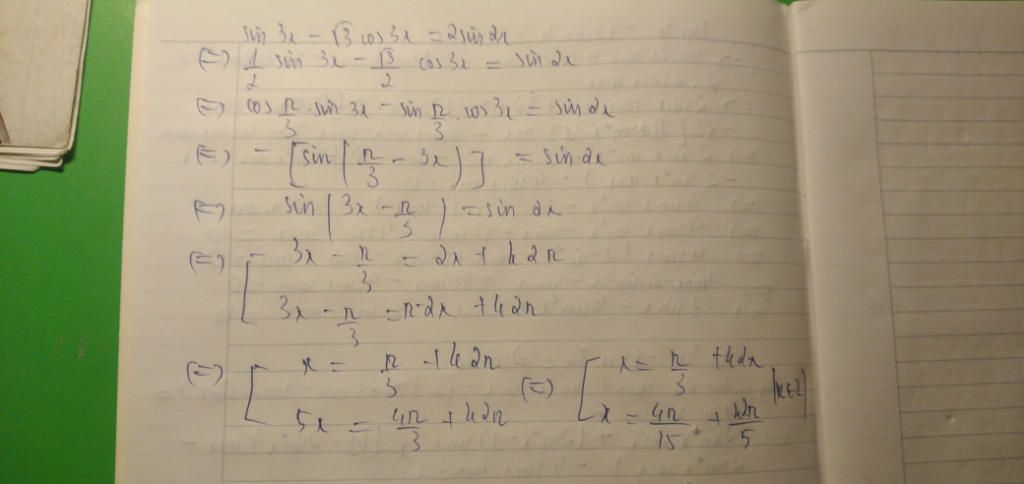 sin 3x − √3 cos 3x = 2 sin 2x
(=) 1/2 sin 3x − √3/2 cos 3x = sin 2x
(=) cos π/3 . sin 3x − sin π/3 . cos 3x = sin 2x
(=) − [sin (π/3 − 3x)] = sin 2x
(=) sin (3x − π/3) = sin 2x
(=) [ 3x − π/3 = 2x + k2π
3x − π/3 = π − 2x + k2π
(=) [ x = π/3 + k2π (=) [ x = π/3 + k2π
5x = 4π/3 + k2π x = 4π/15 + k2π/5 (k∈Z)